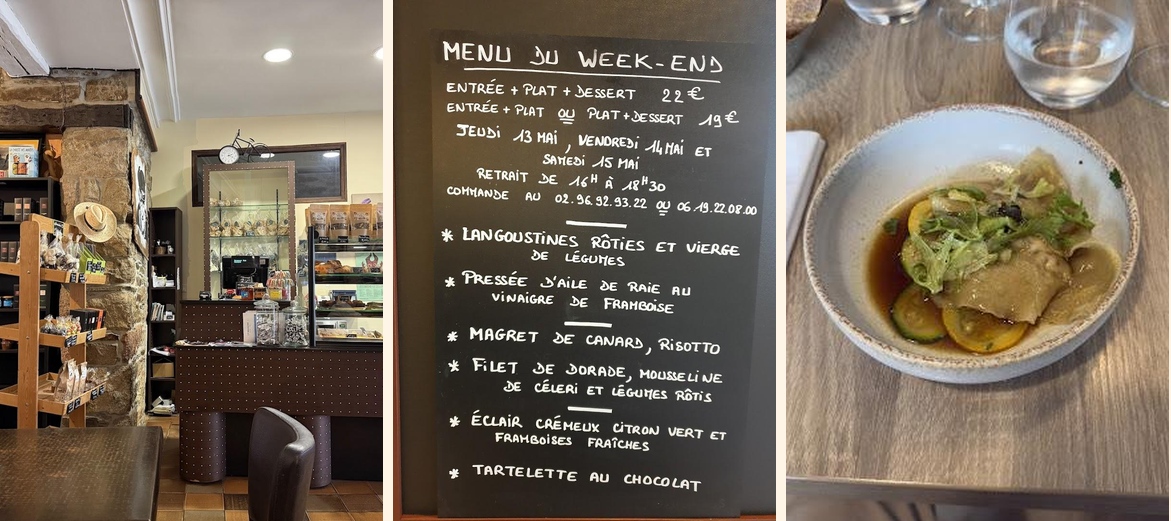 MENU DU WEEK-END
ENTRÉE + PLAT + DESSERT 22€
ENTRÉE + PLAT OU PLAT + DESSERT 19€
JEUDI 13 MAI, VENDREDI 14 MAI ET
SAMEDI 15 MAI
RETRAIT DE 16H À 18H30
COMMANDE AU 02.96.92.93.22 OU 06.19.22.08.00
* LANGOUSTINES RÔTIES ET VIERGE
DE LÉGUMES
* PRESSÉE D'AILE DE RAIE AU
VINAIGRE DE FRAMBOISE
* MAGRET DE CANARD, RISOTTO
* FILET DE DORADE, MOUSSELINE
DE CÉLERI ET LÉGUMES RÔTIS
* ÉCLAIR CRÉMEUX CITRON VERT ET
FRAMBOISES FRAÎCHES
* TARTELETTE AU CHOCOLAT